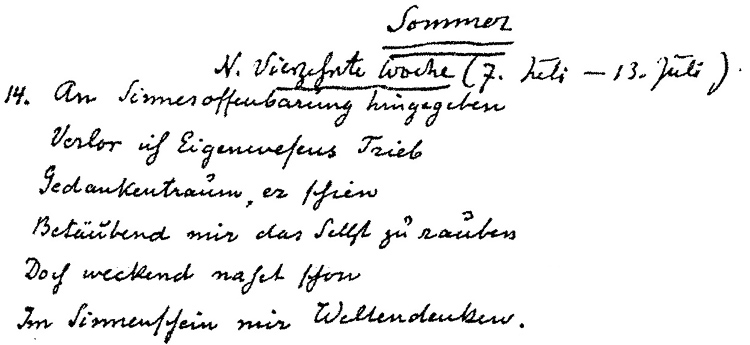 Sommer
N. Vierzehnte Woche (7. Juli – 13. Juli).
14. An Sinnesoffenbarung hingegeben
Verlor ich Eigenwesens Trieb
Gedankentraum, er schien
Betäubend mir das Selbst zu rauben
Doch weckend nahet schon
Im Sinnenschein mir Weltendenken.